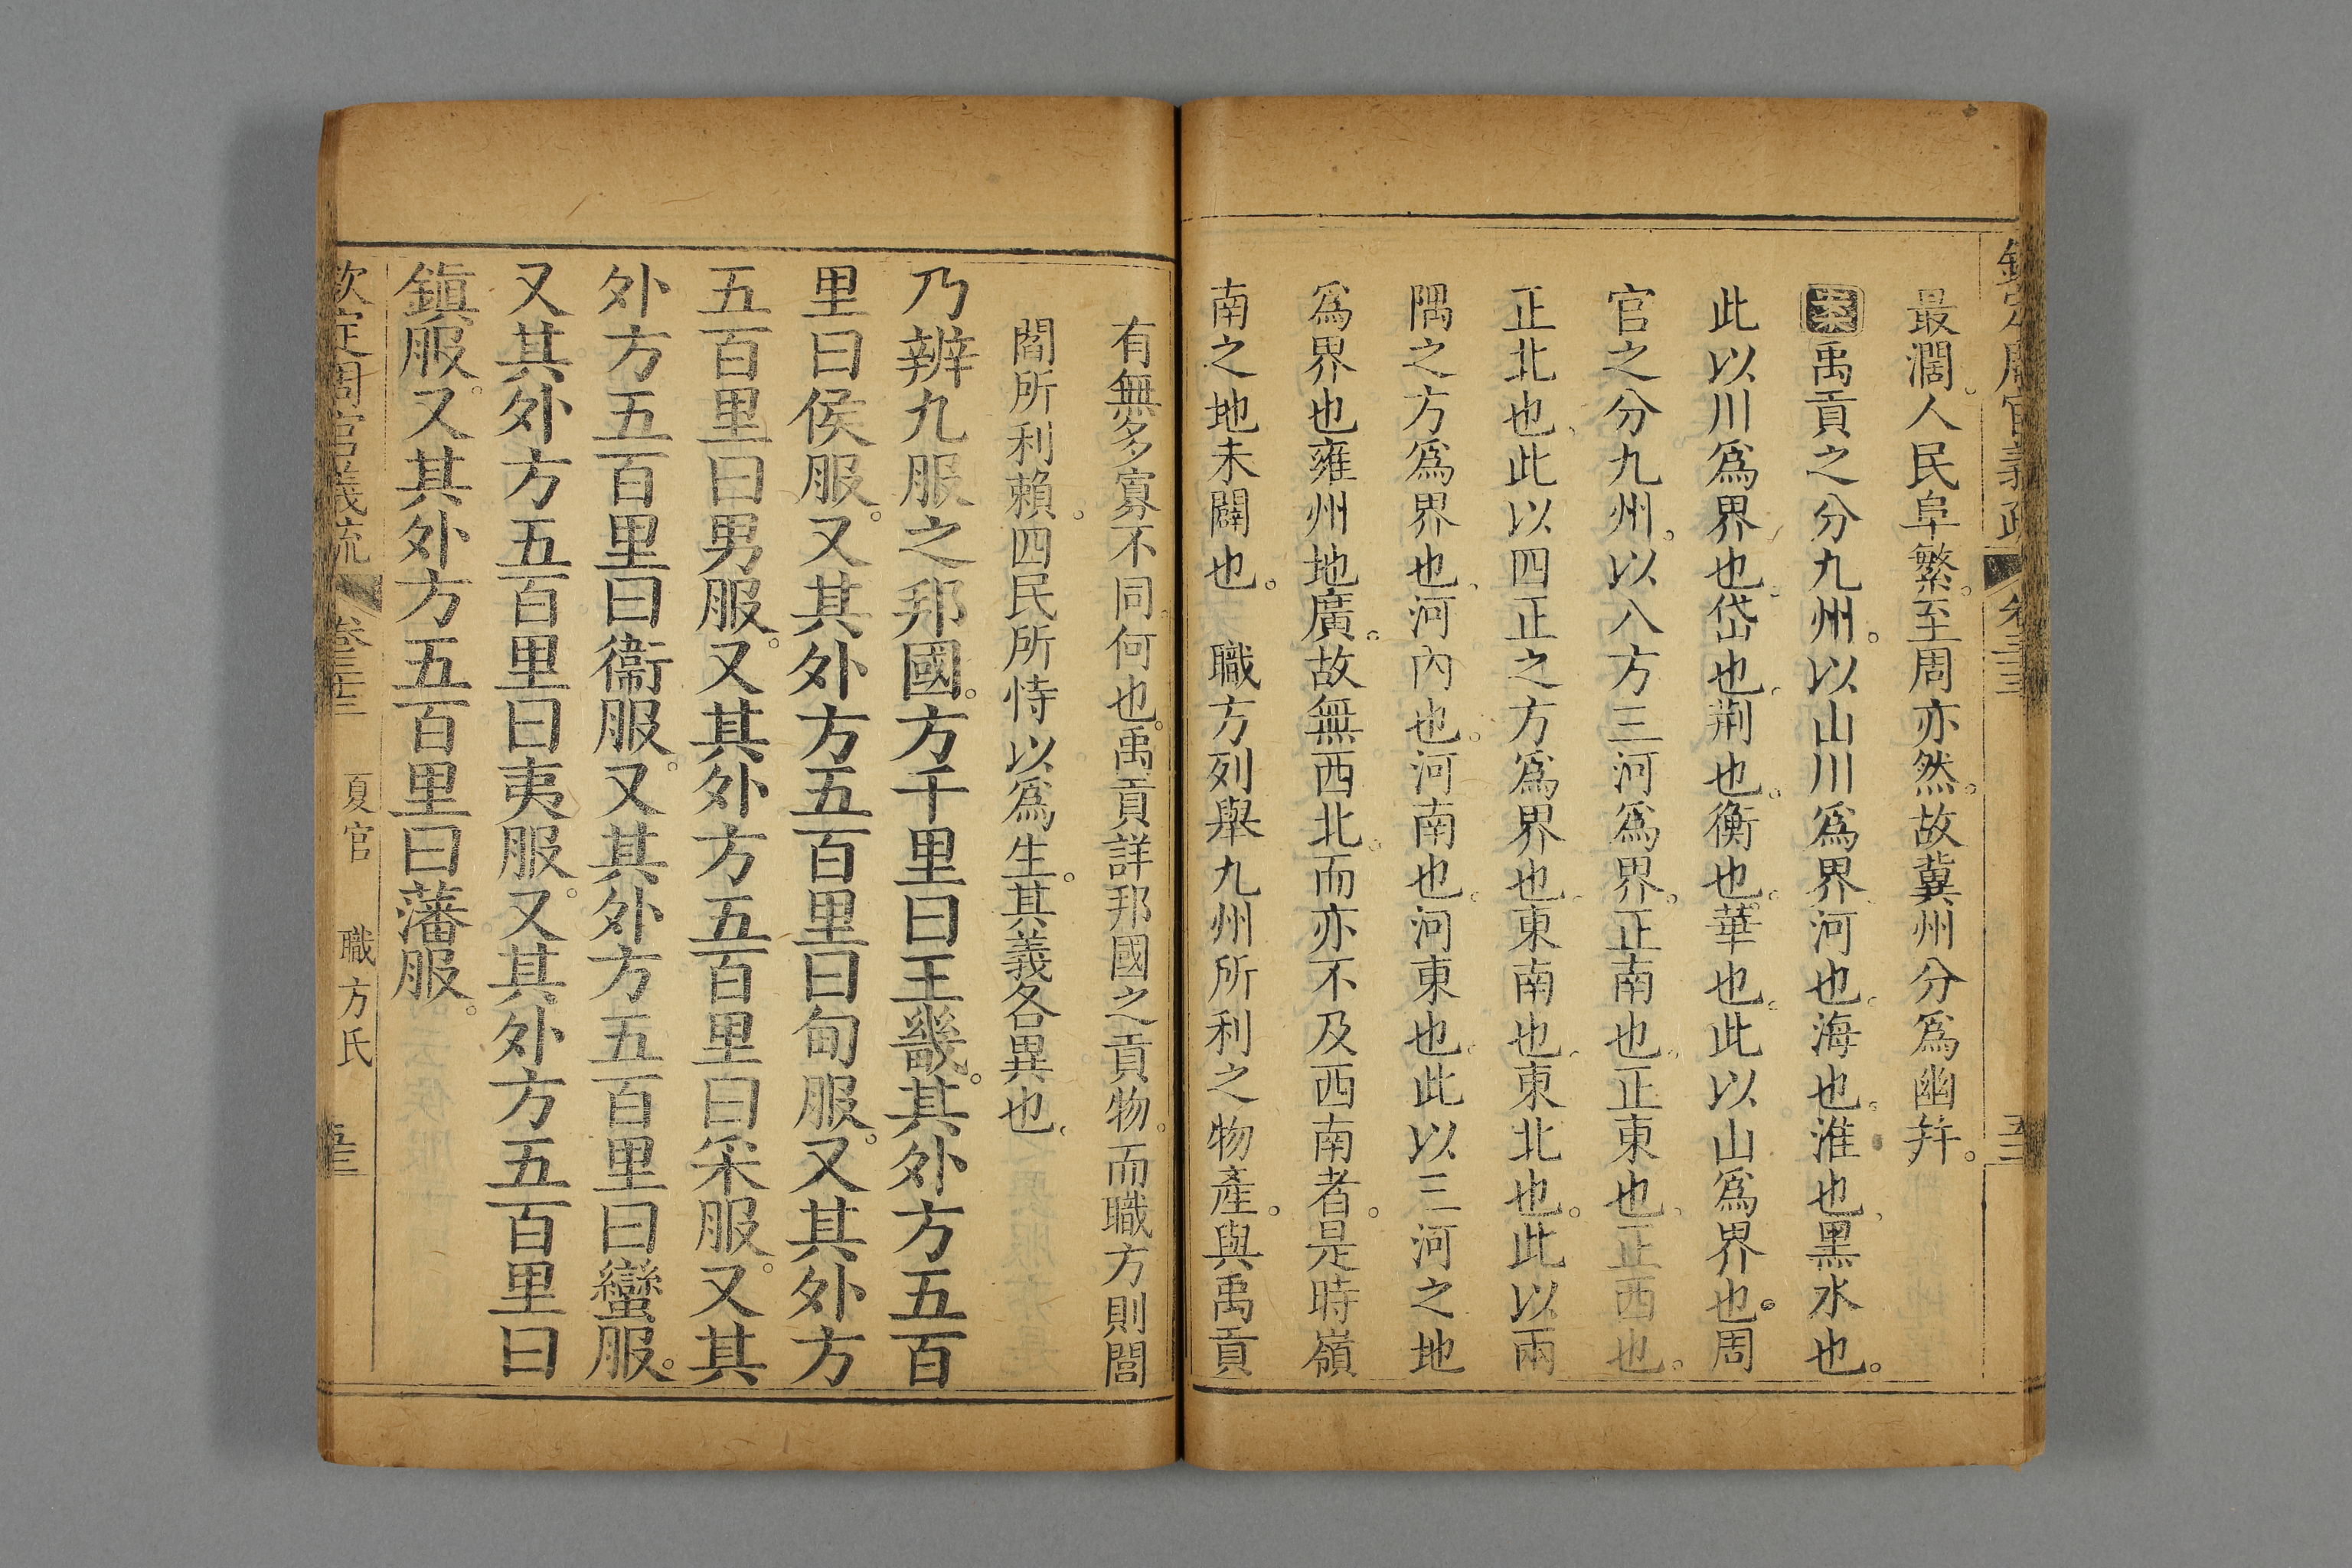 欽定周官義疏 卷三十三 五十三
最濶。人民阜繁。至周亦然。故冀州分爲幽幷。
案禹貢之分九州。以山川爲界。河也。海也。淮也。黑水也。
此以川爲界也。岱也。荆也。衡也。華也。此以山爲界也。周
官之分九州。以八方三河爲界。正南也。正東也。正西也。
正北也。此以四正之方爲界也。東南也。東北也。此以兩
隅之方爲界也。河內也。河南也。河東也。此以三河之地
爲界也雍州地廣。故無西北。而亦不及西南者。是時嶺
南之地未闢也。　職方列舉九州所利之物產。與禹貢
有無多寡不同。何也。禹貢詳邦國之貢物。而職方則閭
閻所利賴。四民所恃以爲生。其義各異也。
乃辨九服之邦國。方千里曰王畿。其外方五百
里曰侯服。又其外方五百里曰甸服。又其外方
五百里曰男服。又其外方五百里曰采服。又其
外方五百里曰衞服。又其外方五百里曰蠻服。
又其外方五百里曰夷服。又其外方五百里曰
鎭服。又其外方五百里曰藩服。
欽定周官義疏 卷三十三 夏官 職方氏